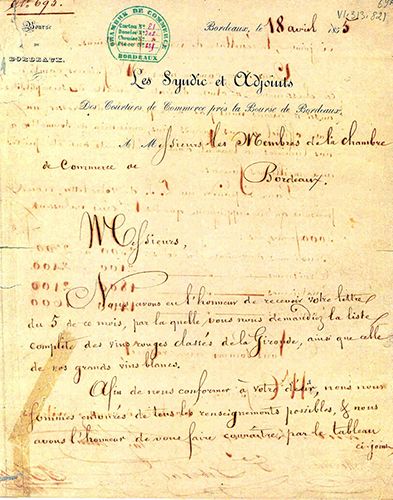 Bourse
de
BORDEAUX.
CHAMBRE DE COMMERCE
BORDEAUX
Bordeaux, le 18 avril 1855
Les Syndic et Adjoints
Des Courtiers de Commerce près la Bourse de Bordeaux,
A Messieurs les Membres de la chambre
de Commerce de
Bordeaux.
Messieurs,
Nous avons eu l'honneur de recevoir votre lettre
du 5 de ce mois, par la quelle vous nous demandiez la liste
complète des vins rouges classés de la Gironde, ainsi que celle
de nos grands vins blancs.
Afin de nous conformer à votre désir, nous nous
sommes entourés de tous les renseignements possibles, & nous
avons l'honneur de vous faire connaître, par le tableau
ci-joint